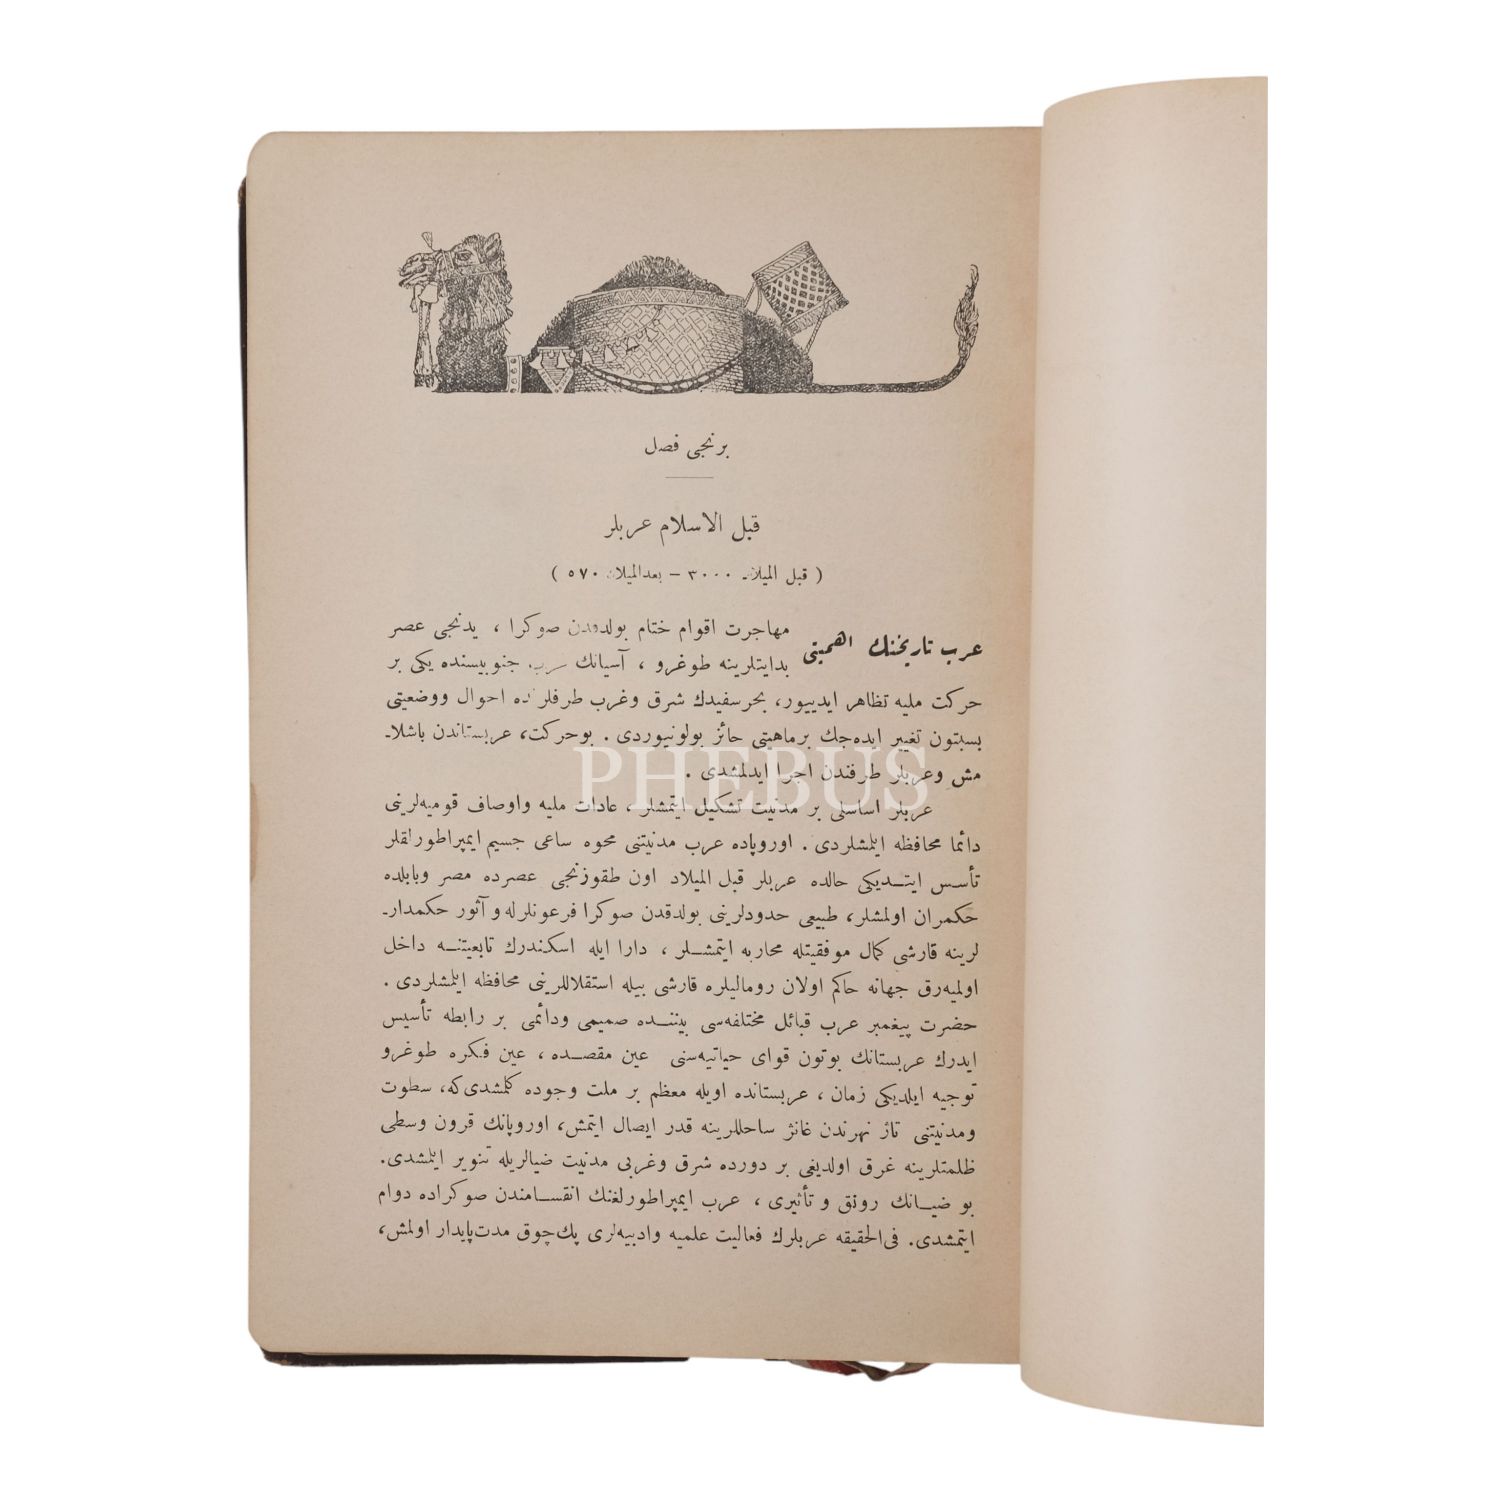 برنجی فصل
قبل الاسلام عربلر
( قبل المیلاد ۳۰۰۰ – بعدالمیلاد ۵۷۰ )
عرب تاریخنك اهمیتی
مهاجرت اقوام ختام بولدقدن صوکرا ، یدنجی عصر
بدایتلرینه طوغرو ، آسیانك غرب جنوبیسنده یکی بر
حرکت ملیه تظاهر ایدییور، بحرسفیدك شرق وغرب طرفلرنده احوال ووضعیتی
بسبتون تغییر ایده‌جك برماهیتی حائز بولونیوردی . بوحرکت، عربستاندن باشلا-
مش وعربلر طرفندن اجرا ایدلمشدی .
عربلر اساسلی بر مدنیت تشکیل ایتمشلر ، عادات ملیه واوصاف قومیه‌لرینی
دائما محافظه ایلمشلردی . اوروپاده عرب مدنیتنی محوه ساعی جسیم ایمپراطورلقلر
تأسس ایتدیکی حالده عربلر قبل المیلاد اون طقوزنجی عصرده مصر وبابلده
حکمران اولمشلر، طبیعی حدودلرینی بولدقدن صوکرا فرعونلرله و آثور حکمدار-
لرینه قارشی کمال موفقیتله محاربه ایتمشلر ، دارا ایله اسکندرك تابعیتنه داخل
اولمیه‌رق جهانه حاکم اولان رومالیلره قارشی بیله استقلاللرینی محافظه ایلمشلردی .
حضرت پیغمبر عرب قبائل مختلفه‌سی بیننده صمیمی ودائمی بر رابطه تأسیس
ایدرك عربستانك بوتون قوای حیاتیه‌سنی عین مقصده ، عین فکره طوغرو
توجیه ایلدیکی زمان ، عربستانده اویله معظم بر ملت وجوده کلمشدی‌که، سطوت
ومدنیتنی تاژ نهرندن غانژ ساحللرینه قدر ایصال ایتمش، اوروپانك قرون وسطی
ظلمتلرینه غرق اولدیغی بر دورده شرق وغربی مدنیت ضیالریله تنویر ایلمشدی.
بو ضیانك رونق و تأثیری ، عرب ایمپراطورلغنك انقسامندن صوکراده دوام
ایتمشدی. فی‌الحقیقه عربلرك فعالیت علمیه وادبیه‌لری پك‌چوق مدت‌پایدار اولمش،
PHEBUS